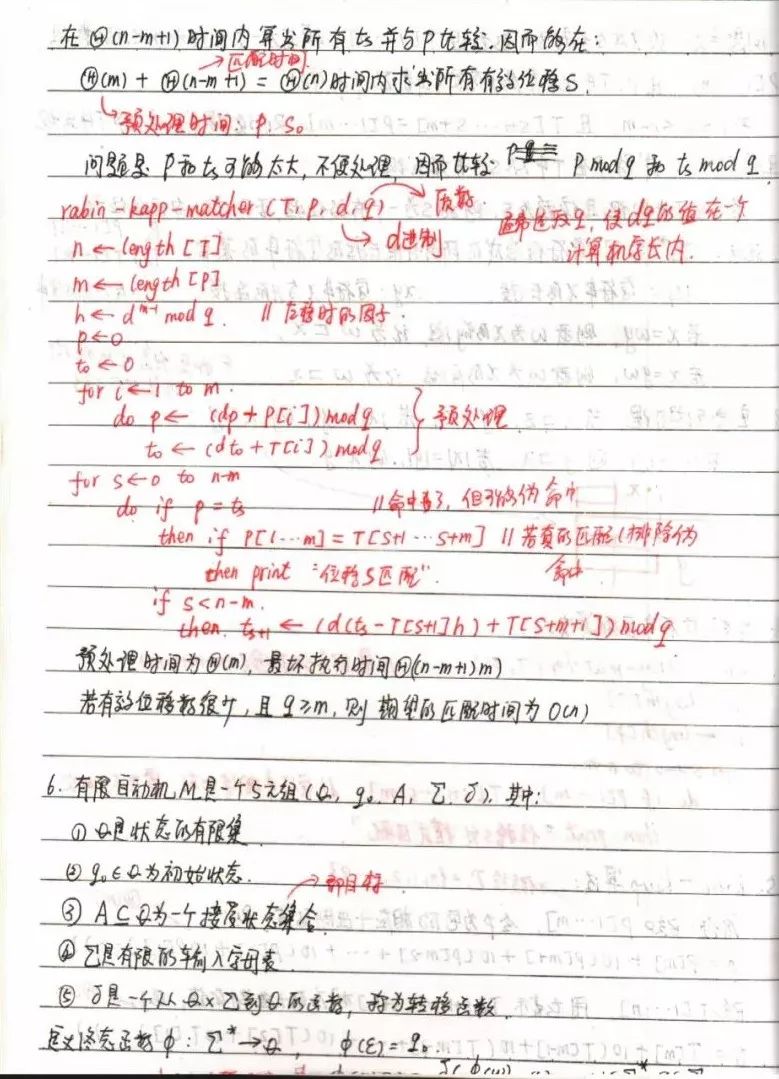 在Θ(n-m+1)时间内算出所有ts并与P比较.因而能在:
→匹配时间
Θ(m) + Θ(n-m+1) = Θ(n)时间内求出所有有效位移S.
↳预处理时间. p, S₀
问题是: P和ts可能太大,不便处理,因而比较 P mod q 和 ts mod q
rabin-kapp-matcher(T, P, d, q) → 质数
↳ d进制
通常选取q,使dq的值在一个
计算机字长内.
n ← length[T]
m ← length[P]
h ← d^(m-1) mod q. // 左移时的因子.
p ← 0
t₀ ← 0
for i ← 1 to m.
do p ← (dp + P[i]) mod q } 预处理
t₀ ← (dt₀ + T[i]) mod q
for s ← 0 to n-m
do if p = ts // 命中了,但可能伪命中
then if P[1…m] = T[s+1…s+m] // 若真的匹配(排除伪
命中
then print "位移S匹配".
if s < n-m.
then. ts+1 ← (d(ts - T[s+1]h) + T[s+m+1]) mod q.
预处理时间为Θ(m), 最坏执行时间Θ((n-m+1)m)
若有效位移数很少,且q≥m,则期望的匹配时间为O(n)
6. 有限自动机M是一个5元组(Q, q₀, A, Σ, δ).其中:
① Q是状态的有限集
② q₀∈Q为初始状态.
→即目标
③ A⊆Q为一个接受状态集合.
④ Σ是有限的输入字母表.
⑤ δ是一个从Q×Σ到Q的函数,称为转移函数.
定义终态函数φ: Σ* → Q, φ(ε) = q₀